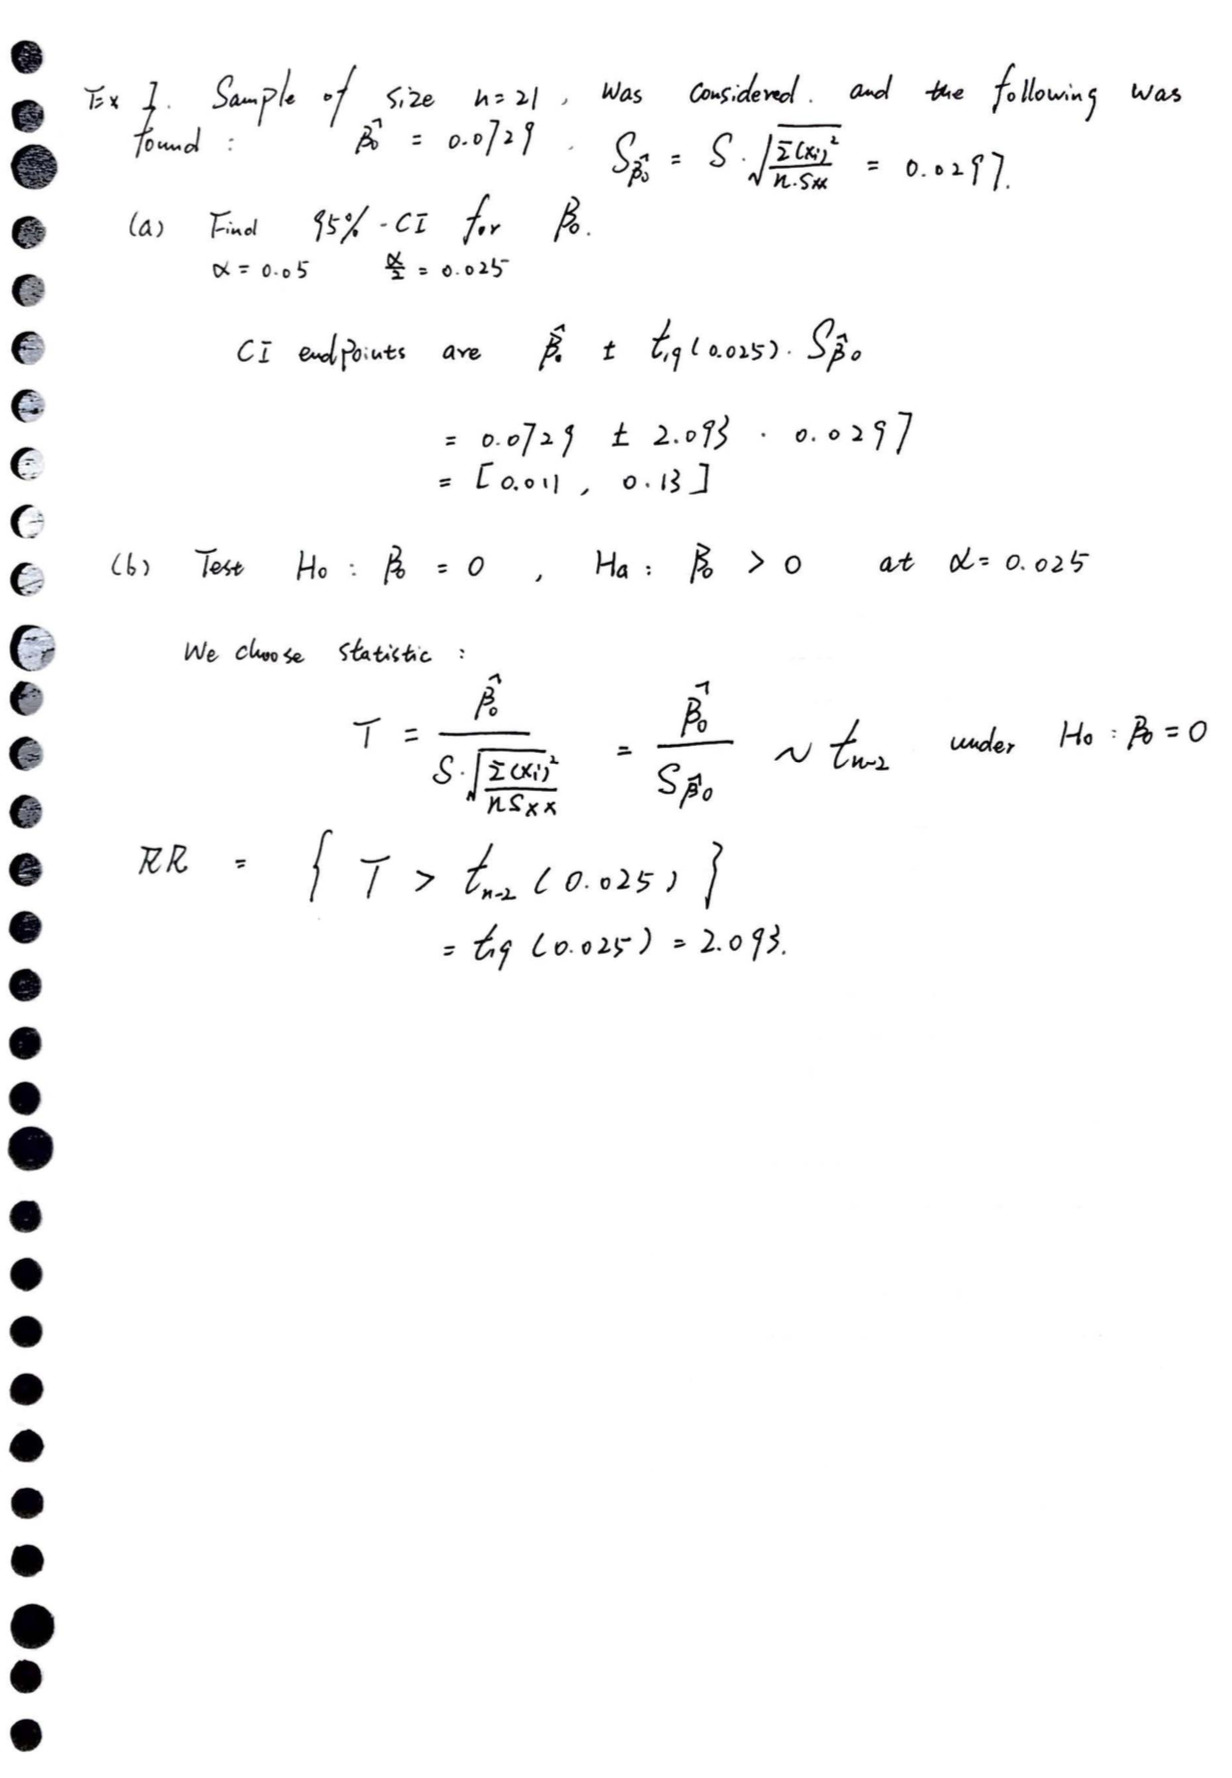 Ex 1. Sample of size n=21, was considered. and the following was
found: β̂₀ = 0.0729. S_β̂₀ = S·√(Σ(xᵢ)²/n·Sxx) = 0.0297.
(a) Find 95%-CI for β₀.
α = 0.05 α/2 = 0.025
CI endpoints are β̂₀ ± t₁₉(0.025)·S_β̂₀
= 0.0729 ± 2.093 · 0.0297
= [0.011, 0.13]
(b) Test H₀: β₀ = 0, Ha: β₀ > 0 at α = 0.025
We choose statistic:
T = β̂₀/(S·√(Σ(xᵢ)²/nSxx)) = β̂₀/S_β̂₀ ~ tₙ₋₂ under H₀: β₀ = 0
RR = { T > tₙ₋₂(0.025) }
= t₁₉(0.025) = 2.093.